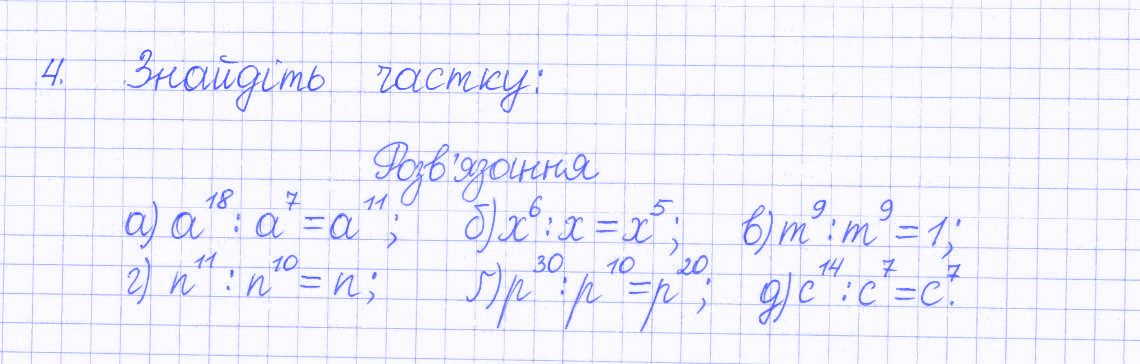 4. Знайдіть частку:
Розв'язання
а) a¹⁸ : a⁷ = a¹¹; б) x⁶ : x = x⁵; в) m⁹ : m⁹ = 1;
г) n¹¹ : n¹⁰ = n; ґ) p³⁰ : p¹⁰ = p²⁰; д) c¹⁴ : c⁷ = c⁷.